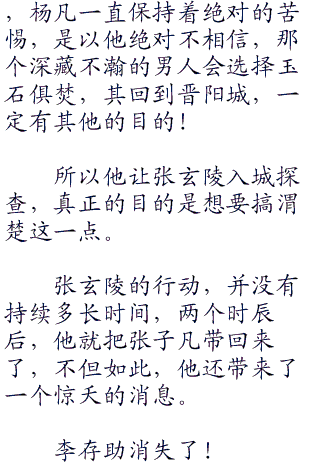 ，杨凡一直保持着绝对的苦
惕，是以他绝对不相信，那
个深藏不瀚的男人会选择玉
石俱焚，其回到晋阳城，一
定有其他的目的！
所以他让张玄陵入城探
查，真正的目的是想要搞渭
楚这一点。
张玄陵的行动，并没有
持续多长时间，两个时辰
后，他就把张子凡带回来
了，不但如此，他还带来了
一个惊天的消息。
李存助消失了！